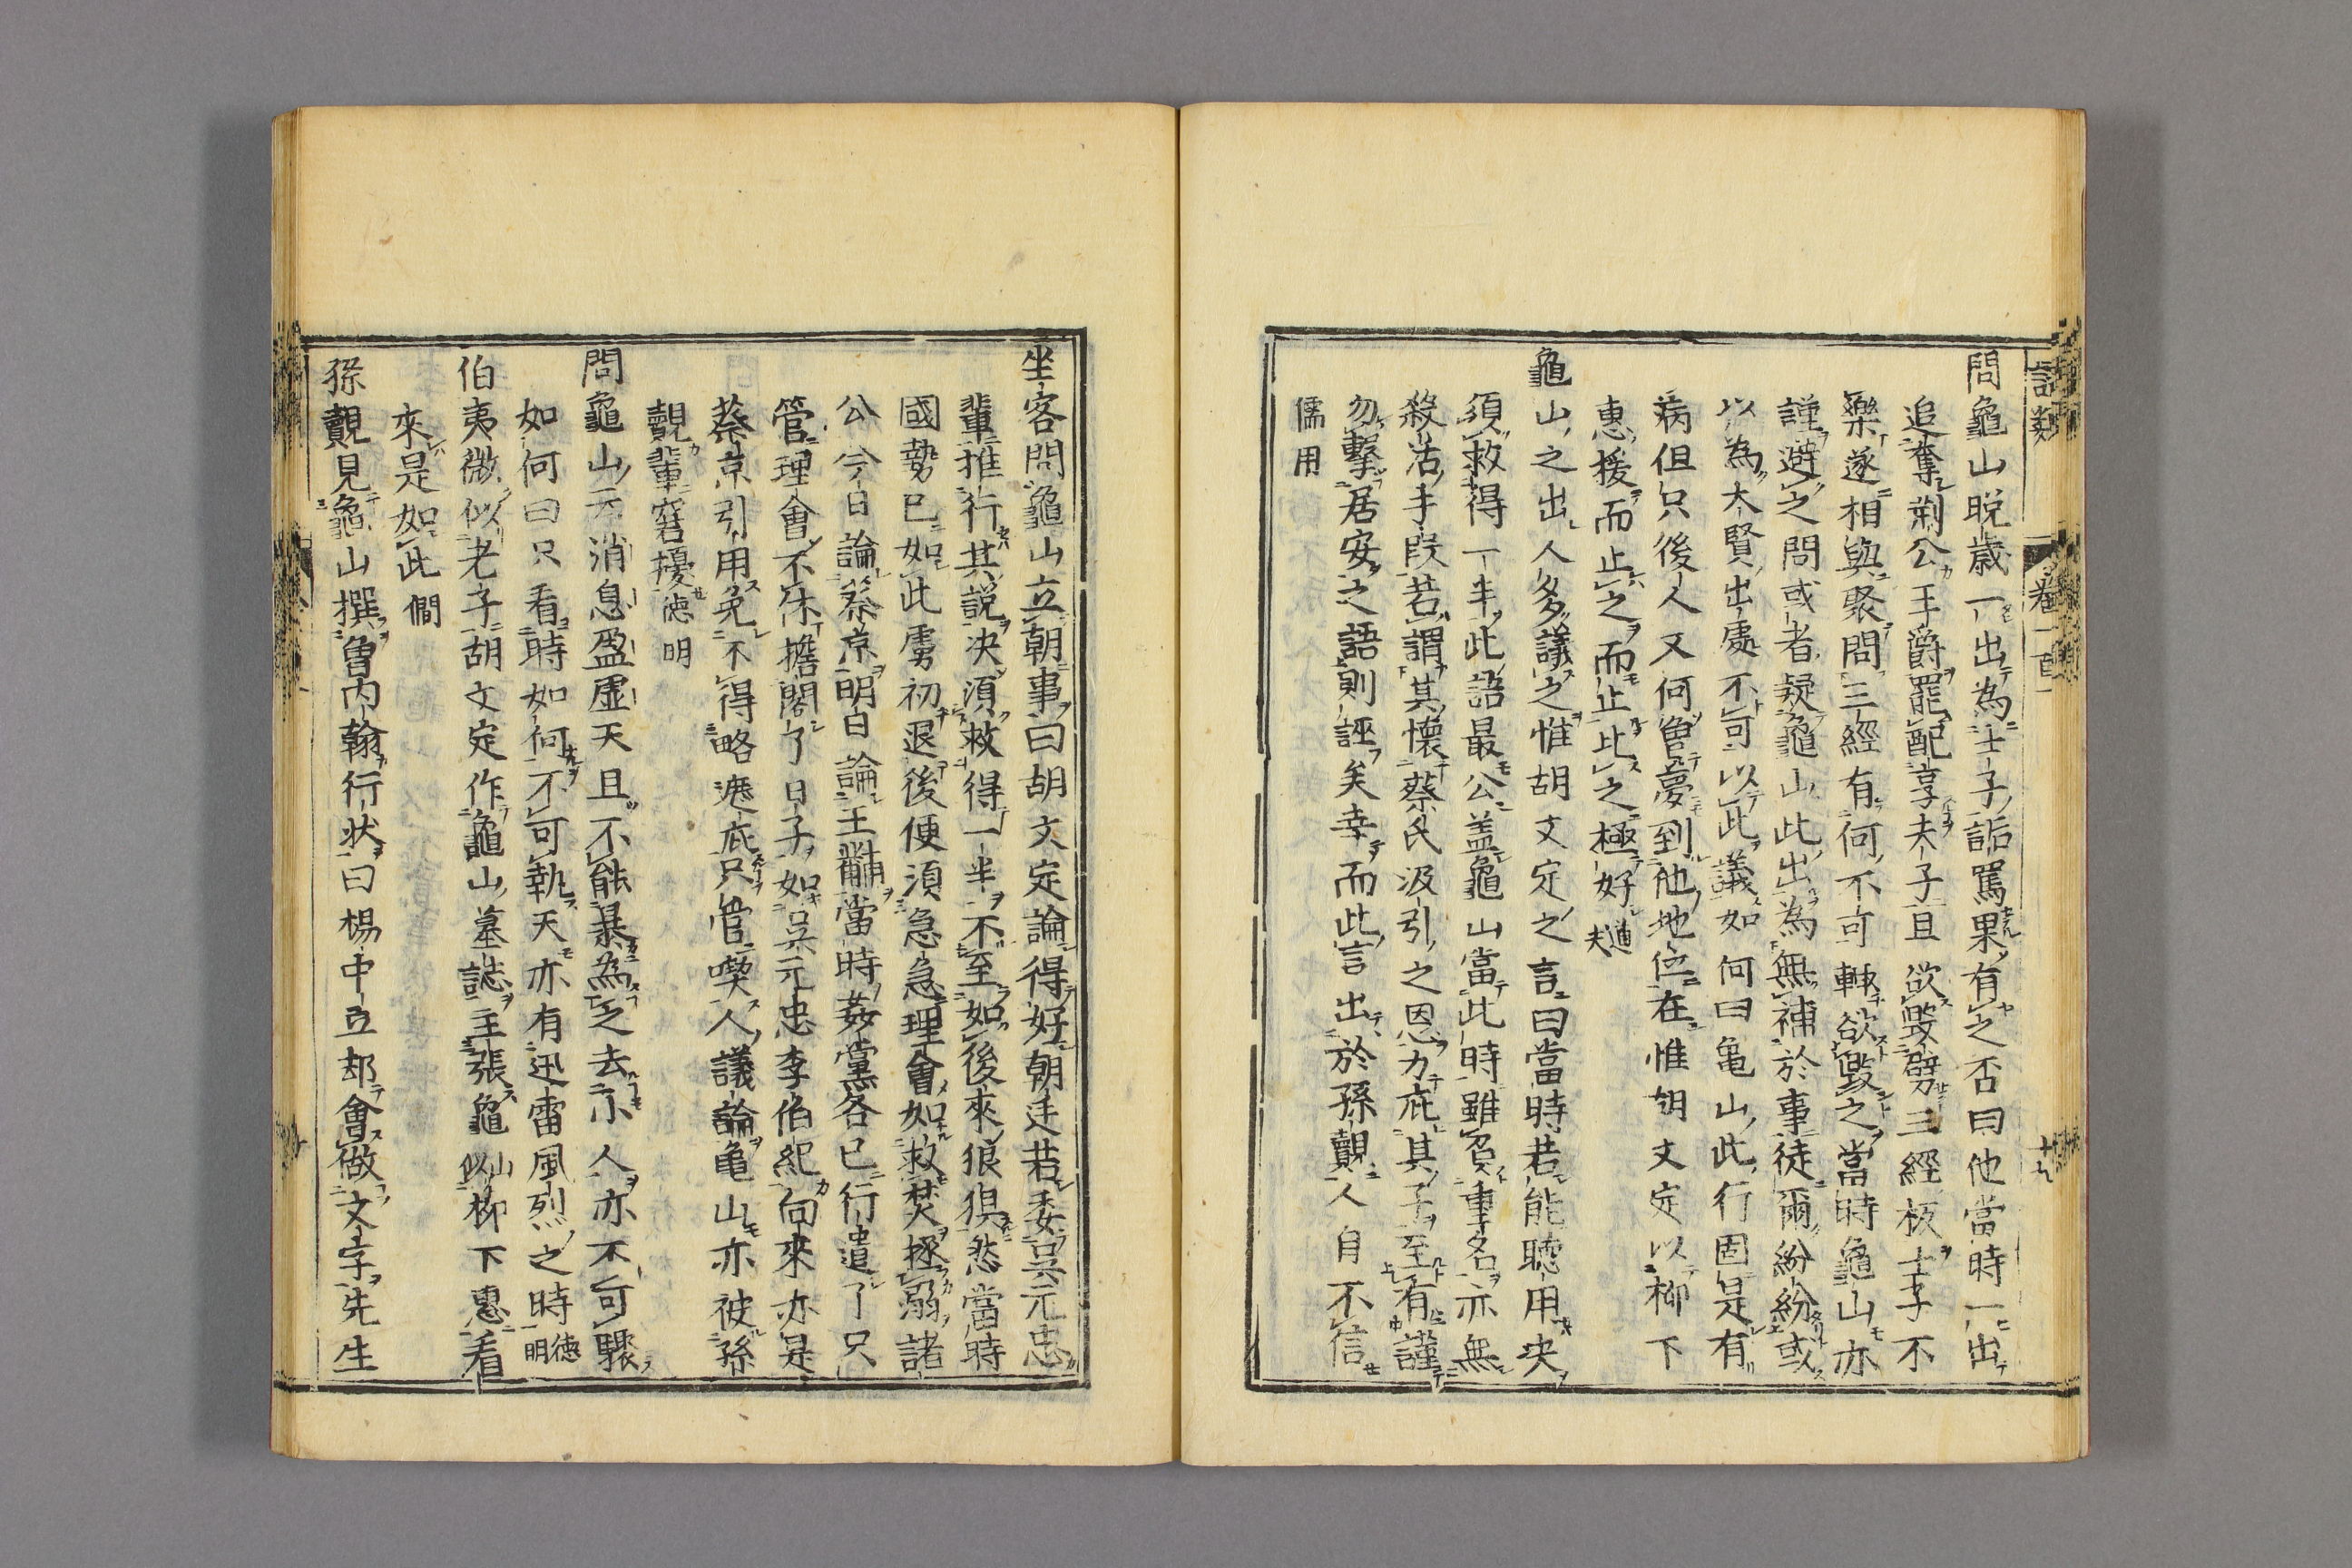 語類
卷一百一
十九
問龜山晚歲一出為士子詬罵果有之否曰他當時一出
追奪荆公王爵罷配享夫子且欲毀劈三經板士子不
樂遂相與聚問三經有何不可輙欲毀之當時龜山亦
謹避之問或者疑龜山此出為無補於事徒爾紛紛或
以為大賢出處不可以此議如何曰亀山此行固是有
病但只後人又何曽夢到他地位在惟胡文定以柳下
惠援而止之而止比之極好道夫
龜山之出人多議之惟胡文定之言曰當時若能聴用决
須救得一半此語最公盖龜山當此時雖負重名亦無
殺活手段若謂其懷蔡氏汲引之恩力庇其子至有謹
勿擊居安之語則誣矣幸而此言出於孫覿人自不信
儒用
坐客問龜山立朝事曰胡文定論得好朝廷若委吴元忠
輩推行其説决須救得一半不至如後來狼狽然當時
國勢已如此虜初退後便須急急理會如救焚拯溺諸
公今日論蔡京明日論王黼當時姦黨各已行遣了只
管理會不休擔閣了日子如吴元忠李伯紀向來亦是
蔡京引用免不得略遮庇只管喫人議論亀山亦被孫
覿輩窘擾徳明
問龜山言天消息盈虚天且不能暴為之去小人亦不可驟
如何曰只看時如何不可執天亦有迅雷風烈之時徳明
伯夷微似老子胡文定作龜山墓誌主張龜山似柳下惠看
來是如此僩
孫覿見龜山撰曽内翰行状曰楊中立却會做文字先生